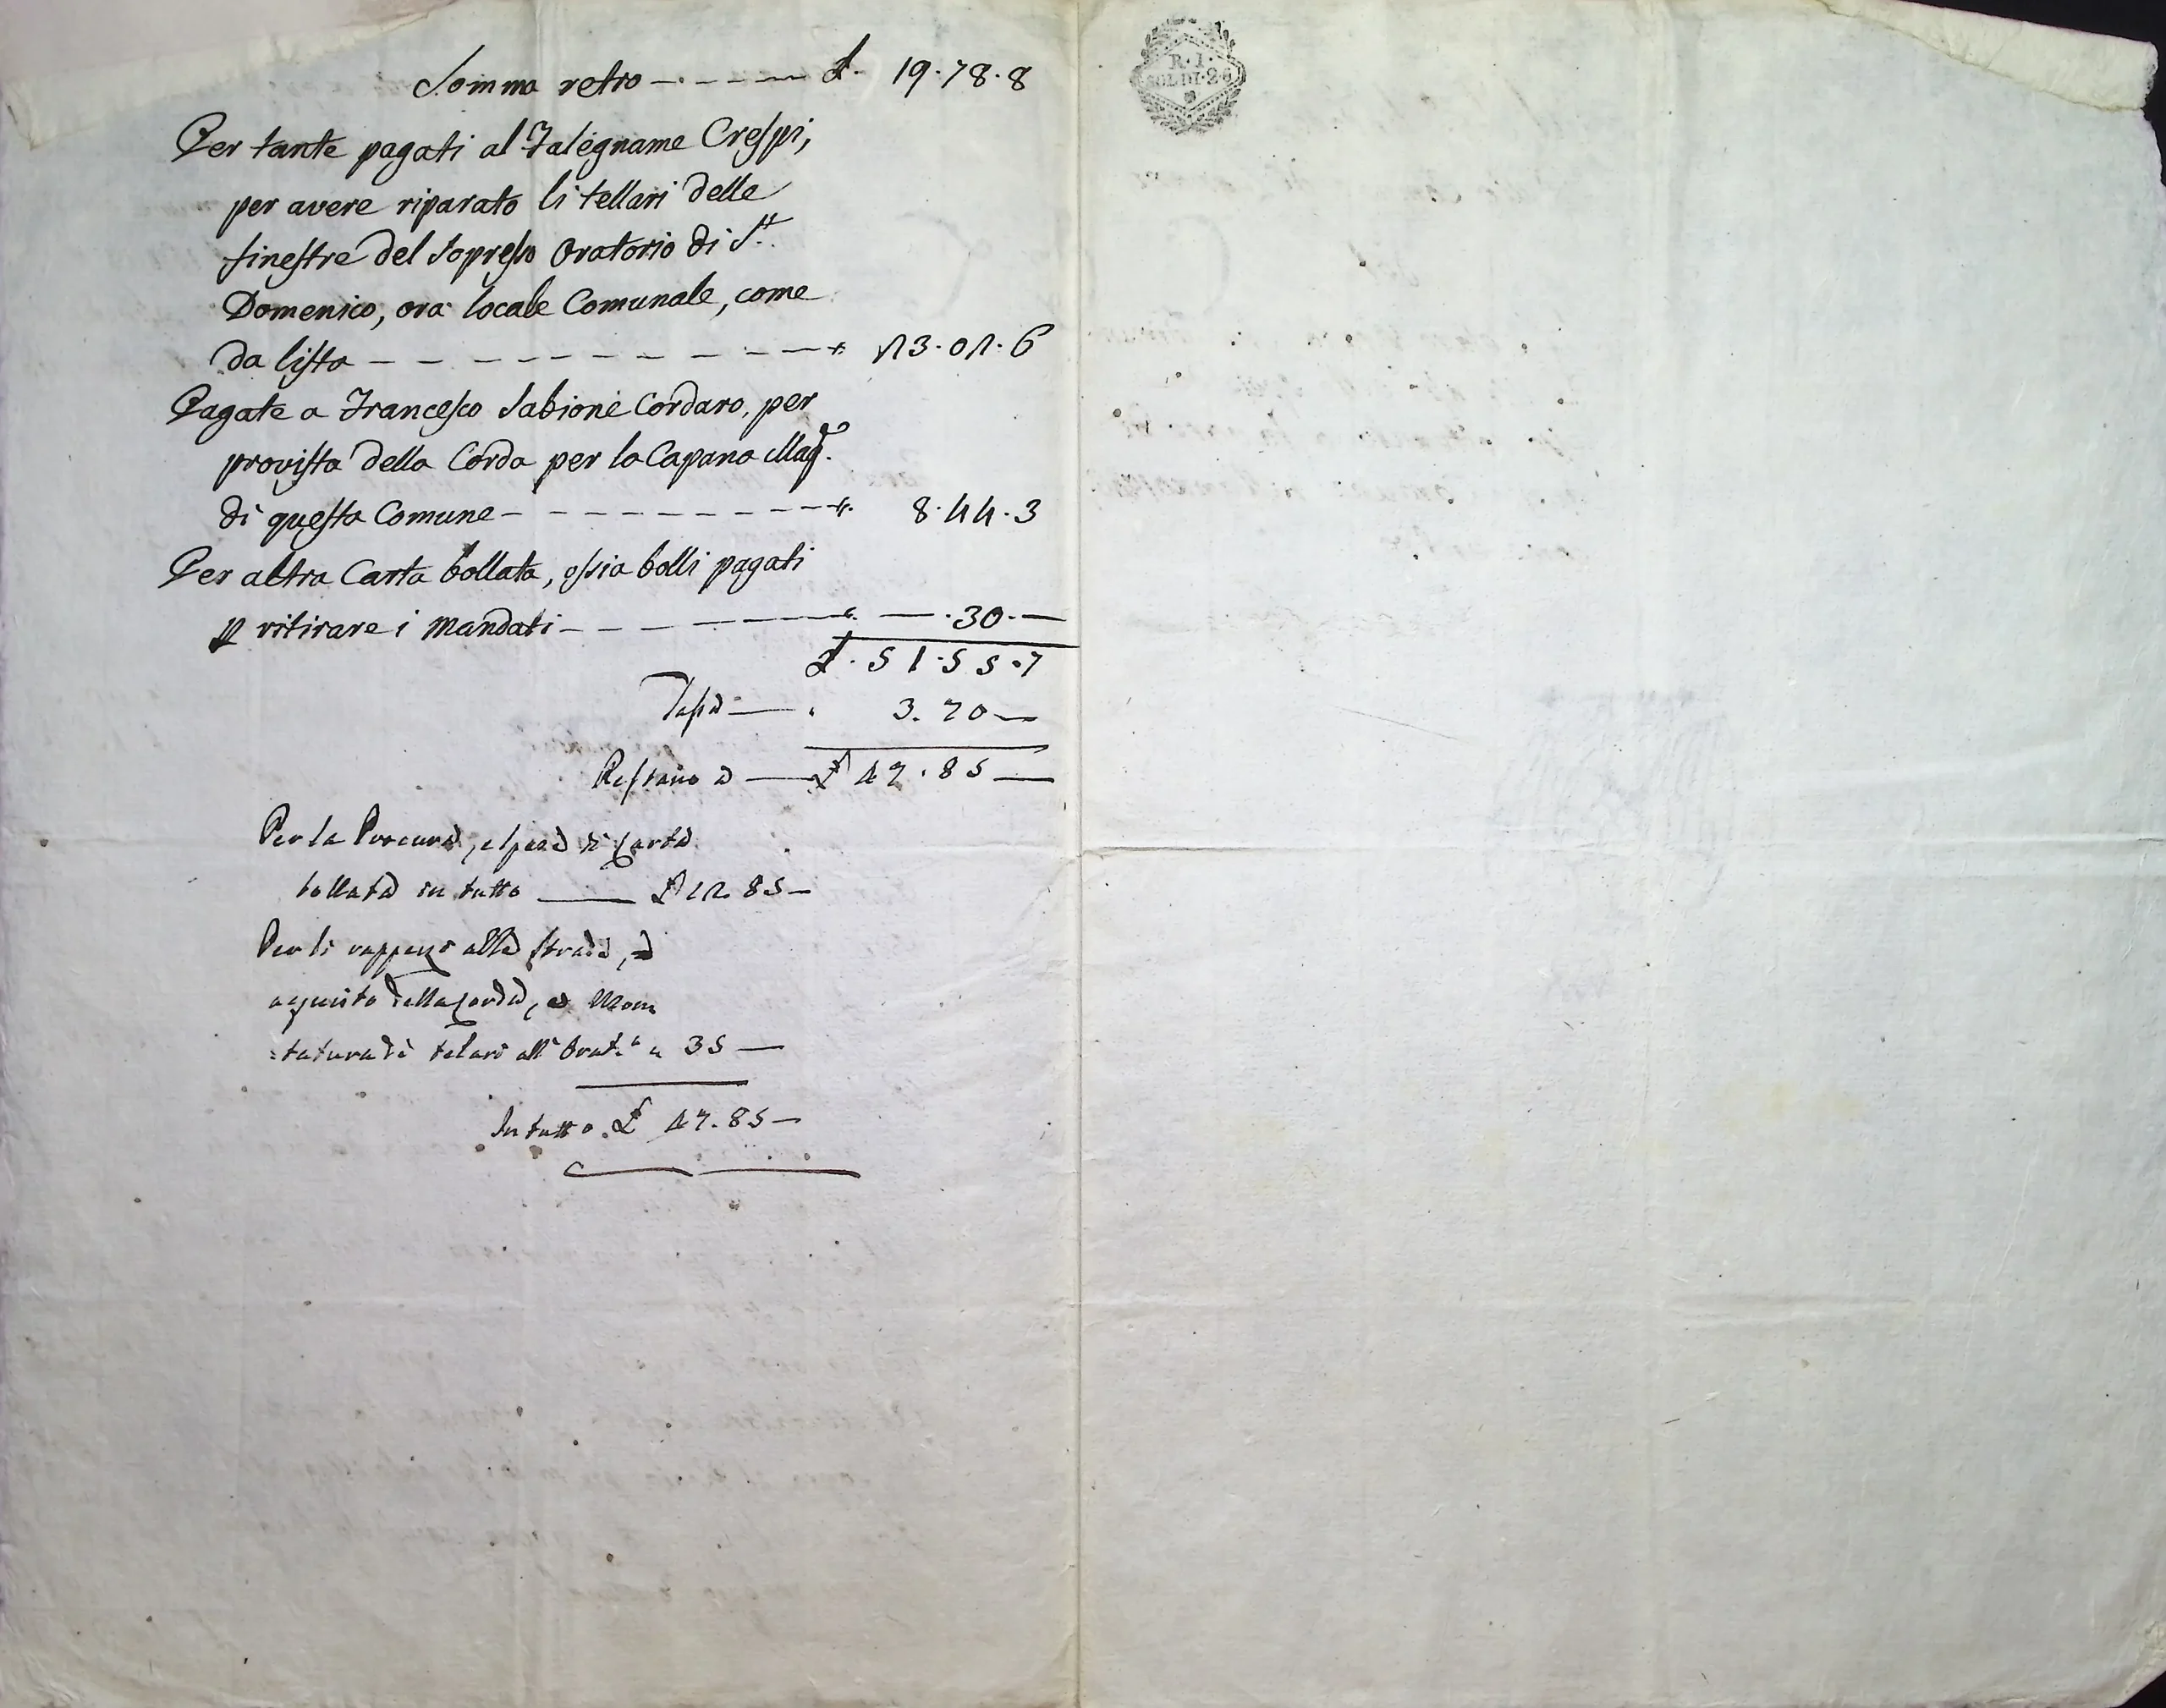 Somma retro £. 19.78.8
Per tante pagati al Falegname Crespi,
per avere riparato li tellari delle
finestre del Sopresso Oratorio di S.t
Domenico, ora locale Comunale, come
da lista " 23.02.6
Pagate a Francesco Sabione Cordaro, per
provista della Corda per la Capana Mag.e
di questa Comune ". 8.44.3
Per altra Carta bollata, ossia bolli pagati
p ritirare i Mandati ". — .30.—
£. 51.55.7
Tassa — " 3.70 —
Restano a — £ 47.85 —
Per la Procura, e spesa di Carta
bollata in tutto — £ 12.85 —
Per li rappezzi alla strada,
aquisto della Corda, e Mon
=tatura dè telari all'Orat.o " 35 —
In tutto £ 47.85 —
R. I.
SOLDI. 26